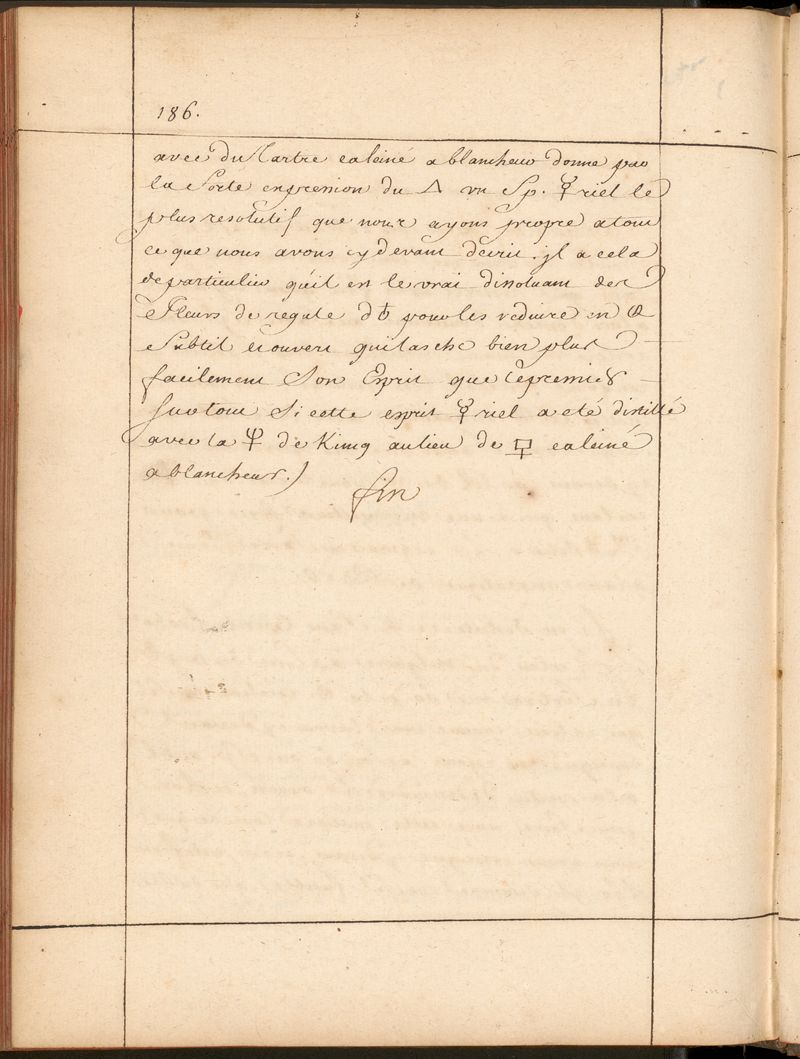 186.
avec du Tartre calciné a blancheur donne par
la forte expression du 🜂 un Sp. ☿riel le
plus resolutif que nous ayons propre a tout
ce que nous avons cy devant decrit. jl a cela
de particulier qu'il est le vrai dissoluant des
Fleurs de regule d♁ pour les reduire en
Subtil et ouvert qui lasche bien plus
facilement Son Esprit que le premier
Surtout Si cette esprit ☿riel a eté distillé
avec la Ψ de Kimq au lieu de calciné
a blancheur.)
fin